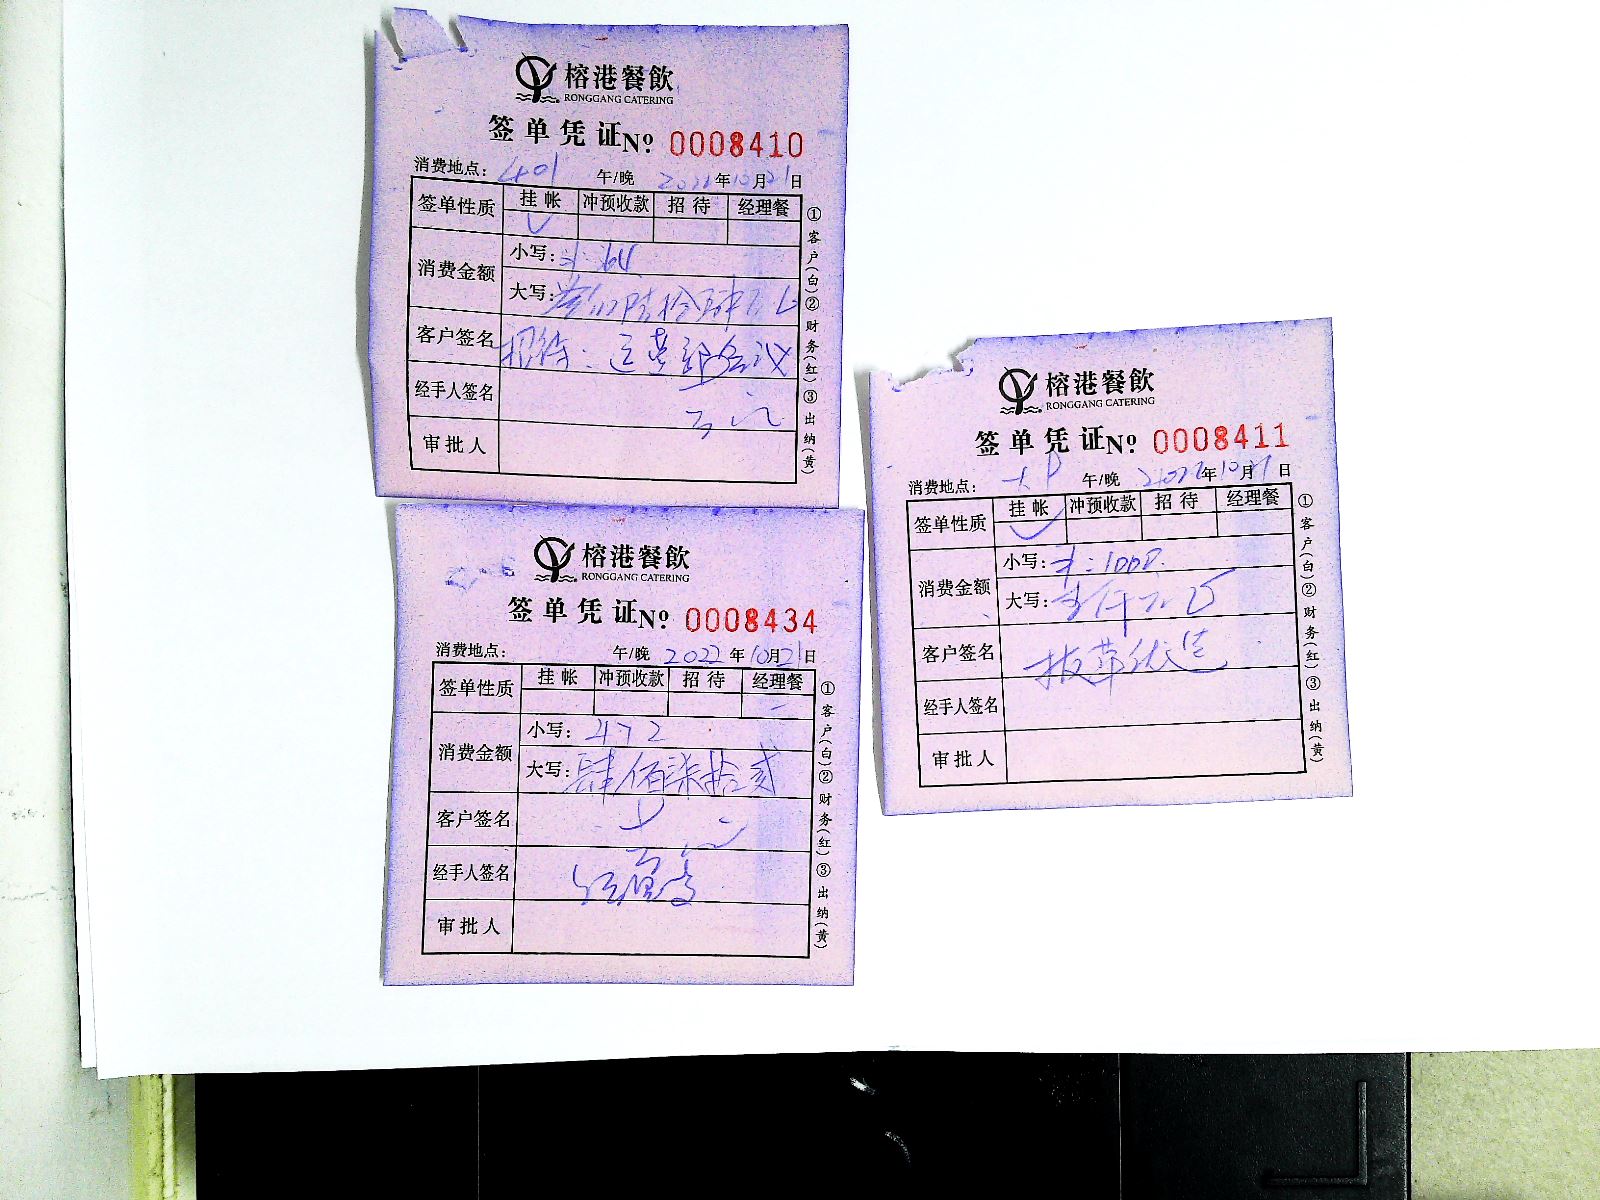 榕港餐飲
RONGGANG CATERING
签单凭证№ 0008410
消费地点: 401 午/晚 2022年10月21日
签单性质 挂帐 冲预收款 招待 经理餐
消费金额 小写:
大写:
客户签名 招待:运营部会议
经手人签名
审批人
①客户(白)②财务(红)③出纳(黄)
榕港餐飲
RONGGANG CATERING
签单凭证№ 0008434
消费地点: 午/晚 2022年10月21日
签单性质 挂帐 冲预收款 招待 经理餐
消费金额 小写: 472
大写: 肆佰柒拾贰
客户签名
经手人签名
审批人
①客户(白)②财务(红)③出纳(黄)
榕港餐飲
RONGGANG CATERING
签单凭证№ 0008411
消费地点: 午/晚 2022年10月21日
签单性质 挂帐 冲预收款 招待 经理餐
消费金额 小写: 1000
大写:
客户签名
经手人签名
审批人
①客户(白)②财务(红)③出纳(黄)